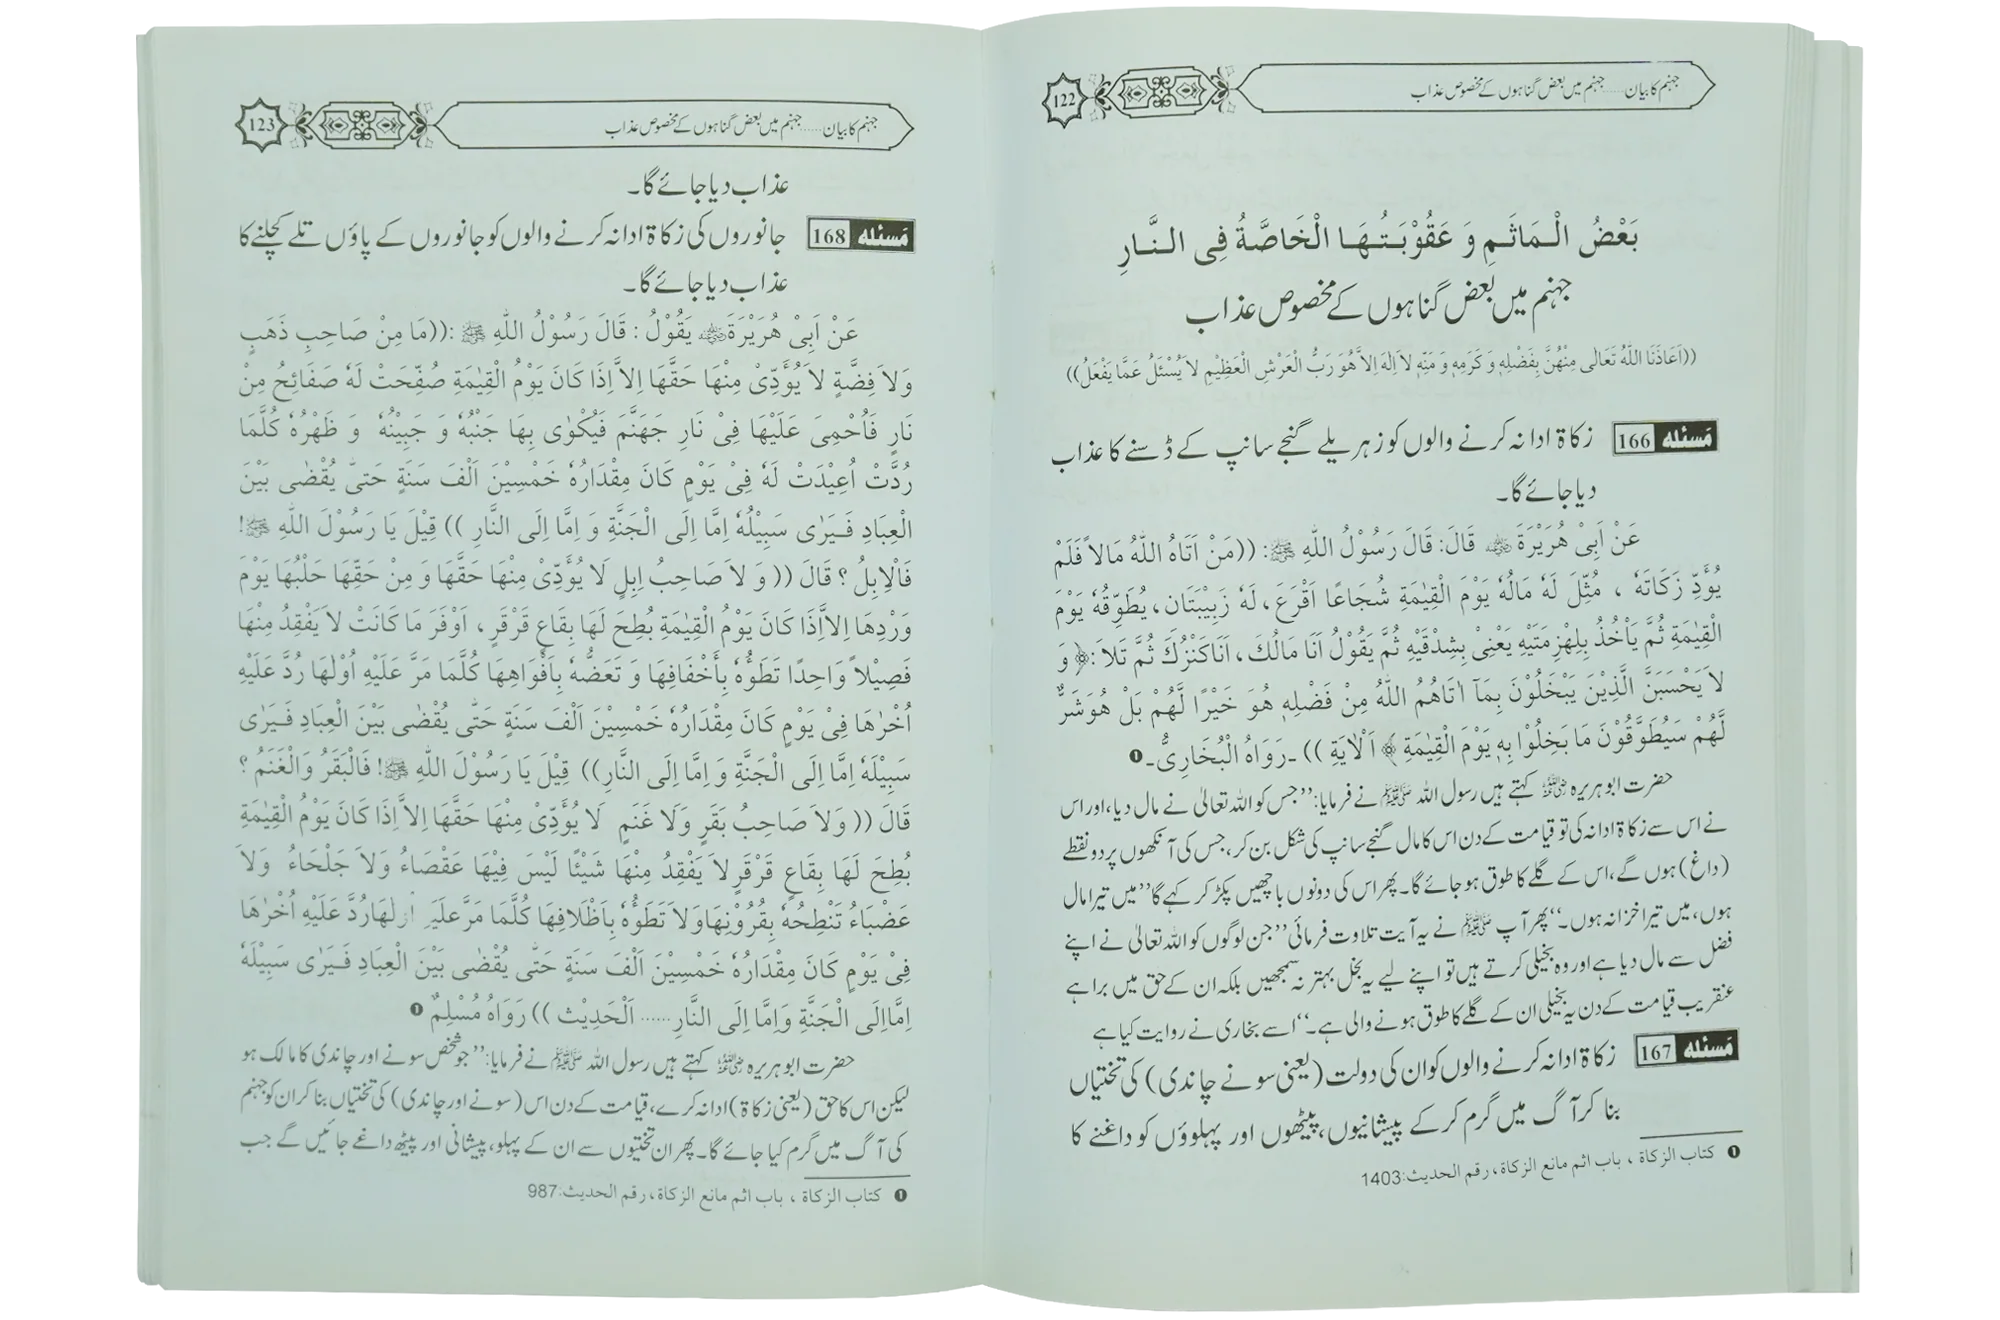 جہنم کا بیان......جہنم میں بعض گناہوں کے مخصوص عذاب 122
بَعْضُ الْمَاثَمِ وَ عَقُوْبَتُهَا الْخَاصَّةُ فِى النَّارِ
جہنم میں بعض گناہوں کے مخصوص عذاب
((اَعَاذَنَا اللّٰهُ تَعَالٰى مِنْهُنَّ بِفَضْلِهٖ وَ كَرَمِهٖ وَ مَنِّهٖ لاَ اِلٰهَ اِلاَّ هُوَ رَبُّ الْعَرْشِ الْعَظِيْمِ لاَ يُسْئَلُ عَمَّا يَفْعَلُ))
مَسئله 166 زکاۃ ادا نہ کرنے والوں کو زہریلے گنجے سانپ کے ڈسنے کا عذاب
دیا جائے گا۔
عَنْ اَبِىْ هُرَيْرَةَ ؓ قَالَ: قَالَ رَسُوْلُ اللّٰهِ ﷺ: ((مَنْ اٰتَاهُ اللّٰهُ مَالاً فَلَمْ
يُؤَدِّ زَكَاتَهٗ ، مُثِّلَ لَهٗ مَالُهٗ يَوْمَ الْقِيٰمَةِ شُجَاعًا اَقْرَعَ، لَهٗ زَبِيْبَتَانِ، يُطَوِّقُهٗ يَوْمَ
الْقِيٰمَةِ ثُمَّ يَاْخُذُ بِلِهْزِمَتَيْهِ يَعْنِىْ بِشِدْقَيْهِ ثُمَّ يَقُوْلُ اَنَا مَالُكَ، اَنَا كَنْزُكَ ثُمَّ تَلاَ :﴿ وَ
لاَ يَحْسَبَنَّ الَّذِيْنَ يَبْخَلُوْنَ بِمَآ اٰتَاهُمُ اللّٰهُ مِنْ فَضْلِهٖ هُوَ خَيْرًا لَّهُمْ بَلْ هُوَ شَرٌّ
لَّهُمْ سَيُطَوَّقُوْنَ مَا بَخِلُوْا بِهٖ يَوْمَ الْقِيٰمَةِ ﴾ اَلْاٰيَةِ )) ۔رَوَاهُ الْبُخَارِىُّ۔ ❶
حضرت ابو ہریرہ ؓ کہتے ہیں رسول اللہ ﷺ نے فرمایا:’’جس کو اللہ تعالیٰ نے مال دیا، اور اس
نے اس سے زکاۃ ادا نہ کی تو قیامت کے دن اس کا مال گنجے سانپ کی شکل بن کر، جس کی آنکھوں پر دو نقطے
(داغ) ہوں گے، اس کے گلے کا طوق ہو جائے گا۔ پھر اس کی دونوں باچھیں پکڑ کر کہے گا ’’میں تیرا مال
ہوں، میں تیرا خزانہ ہوں۔‘‘ پھر آپ ﷺ نے یہ آیت تلاوت فرمائی ’’جن لوگوں کو اللہ تعالیٰ نے اپنے
فضل سے مال دیا ہے اور وہ بخیلی کرتے ہیں تو اپنے لیے یہ بخل بہتر نہ سمجھیں بلکہ ان کے حق میں برا ہے
عنقریب قیامت کے دن یہ بخیلی ان کے گلے کا طوق ہونے والی ہے۔‘‘ اسے بخاری نے روایت کیا ہے
مَسئله 167 زکاۃ ادا نہ کرنے والوں کو ان کی دولت (یعنی سونے چاندی) کی تختیاں
بنا کر آگ میں گرم کر کے پیشانیوں، پیٹھوں اور پہلوؤں کو داغنے کا
❶ كتاب الزكاة ، باب اثم مانع الزكاة، رقم الحديث:1403
جہنم کا بیان......جہنم میں بعض گناہوں کے مخصوص عذاب 123
عذاب دیا جائے گا۔
مَسئله 168 جانوروں کی زکاۃ ادا نہ کرنے والوں کو جانوروں کے پاؤں تلے کچلنے کا
عذاب دیا جائے گا۔
عَنْ اَبِىْ هُرَيْرَةَ ؓ يَقُوْلُ : قَالَ رَسُوْلُ اللّٰهِ ﷺ :((مَا مِنْ صَاحِبِ ذَهَبٍ
وَلاَ فِضَّةٍ لاَ يُؤَدِّىْ مِنْهَا حَقَّهَا اِلاَّ اِذَا كَانَ يَوْمُ الْقِيٰمَةِ صُفِّحَتْ لَهٗ صَفَائِحُ مِنْ
نَارٍ فَاُحْمِىَ عَلَيْهَا فِىْ نَارِ جَهَنَّمَ فَيُكْوٰى بِهَا جَنْبُهٗ وَ جَبِيْنُهٗ وَ ظَهْرُهٗ كُلَّمَا
رُدَّتْ اُعِيْدَتْ لَهٗ فِىْ يَوْمٍ كَانَ مِقْدَارُهٗ خَمْسِيْنَ اَلْفَ سَنَةٍ حَتّٰى يُقْضٰى بَيْنَ
الْعِبَادِ فَيَرٰى سَبِيْلُهٗ اِمَّا اِلَى الْجَنَّةِ وَ اِمَّا اِلَى النَّارِ )) قِيْلَ يَا رَسُوْلَ اللّٰهِ ﷺ!
فَالْاِبِلُ ؟ قَالَ (( وَ لاَ صَاحِبُ اِبِلٍ لَا يُؤَدِّىْ مِنْهَا حَقَّهَا وَ مِنْ حَقِّهَا حَلْبُهَا يَوْمَ
وِرْدِهَا اِلاَّ اِذَا كَانَ يَوْمُ الْقِيٰمَةِ بُطِحَ لَهَا بِقَاعٍ قَرْقَرٍ ، اَوْفَرَ مَا كَانَتْ لاَ يَفْقِدُ مِنْهَا
فَصِيْلاً وَاحِدًا تَطَؤُهٗ بِأَخْفَافِهَا وَ تَعَضُّهٗ بِأَفْوَاهِهَا كُلَّمَا مَرَّ عَلَيْهِ اُوْلٰهَا رُدَّ عَلَيْهِ
اُخْرٰهَا فِىْ يَوْمٍ كَانَ مِقْدَارُهٗ خَمْسِيْنَ اَلْفَ سَنَةٍ حَتّٰى يُقْضٰى بَيْنَ الْعِبَادِ فَيَرٰى
سَبِيْلَهٗ اِمَّا اِلَى الْجَنَّةِ وَ اِمَّا اِلَى النَّارِ)) قِيْلَ يَا رَسُوْلَ اللّٰهِ ﷺ! فَالْبَقَرُ وَالْغَنَمُ ؟
قَالَ (( وَلاَ صَاحِبُ بَقَرٍ وَلَا غَنَمٍ لَا يُؤَدِّىْ مِنْهَا حَقَّهَا اِلاَّ اِذَا كَانَ يَوْمُ الْقِيٰمَةِ
بُطِحَ لَهَا بِقَاعٍ قَرْقَرٍ لاَ يَفْقِدُ مِنْهَا شَيْئًا لَيْسَ فِيْهَا عَقْصَاءُ وَلاَ جَلْحَاءُ وَلاَ
عَضْبَاءُ تَنْطِحُهٗ بِقُرُوْنِهَا وَلاَ تَطَؤُهٗ بِاَظْلاَفِهَا كُلَّمَا مَرَّ عَلَيْهِ اُوْلٰهَا رُدَّ عَلَيْهِ اُخْرٰهَا
فِىْ يَوْمٍ كَانَ مِقْدَارُهٗ خَمْسِيْنَ اَلْفَ سَنَةٍ حَتّٰى يُقْضٰى بَيْنَ الْعِبَادِ فَيَرٰى سَبِيْلَهٗ
اِمَّا اِلَى الْجَنَّةِ وَاِمَّا اِلَى النَّارِ...... اَلْحَدِيْث )) رَوَاهُ مُسْلِمٌ ❶
حضرت ابو ہریرہ ؓ کہتے ہیں رسول اللہ ﷺ نے فرمایا:’’جو شخص سونے اور چاندی کا مالک ہو
لیکن اس کا حق (یعنی زکاۃ) ادا نہ کرے، قیامت کے دن اس (سونے اور چاندی) کی تختیاں بنا کر ان کو جہنم
کی آگ میں گرم کیا جائے گا۔ پھر ان تختیوں سے ان کے پہلو، پیشانی اور پیٹھ داغے جائیں گے جب
❶ كتاب الزكاة ، باب اثم مانع الزكاة، رقم الحديث:987